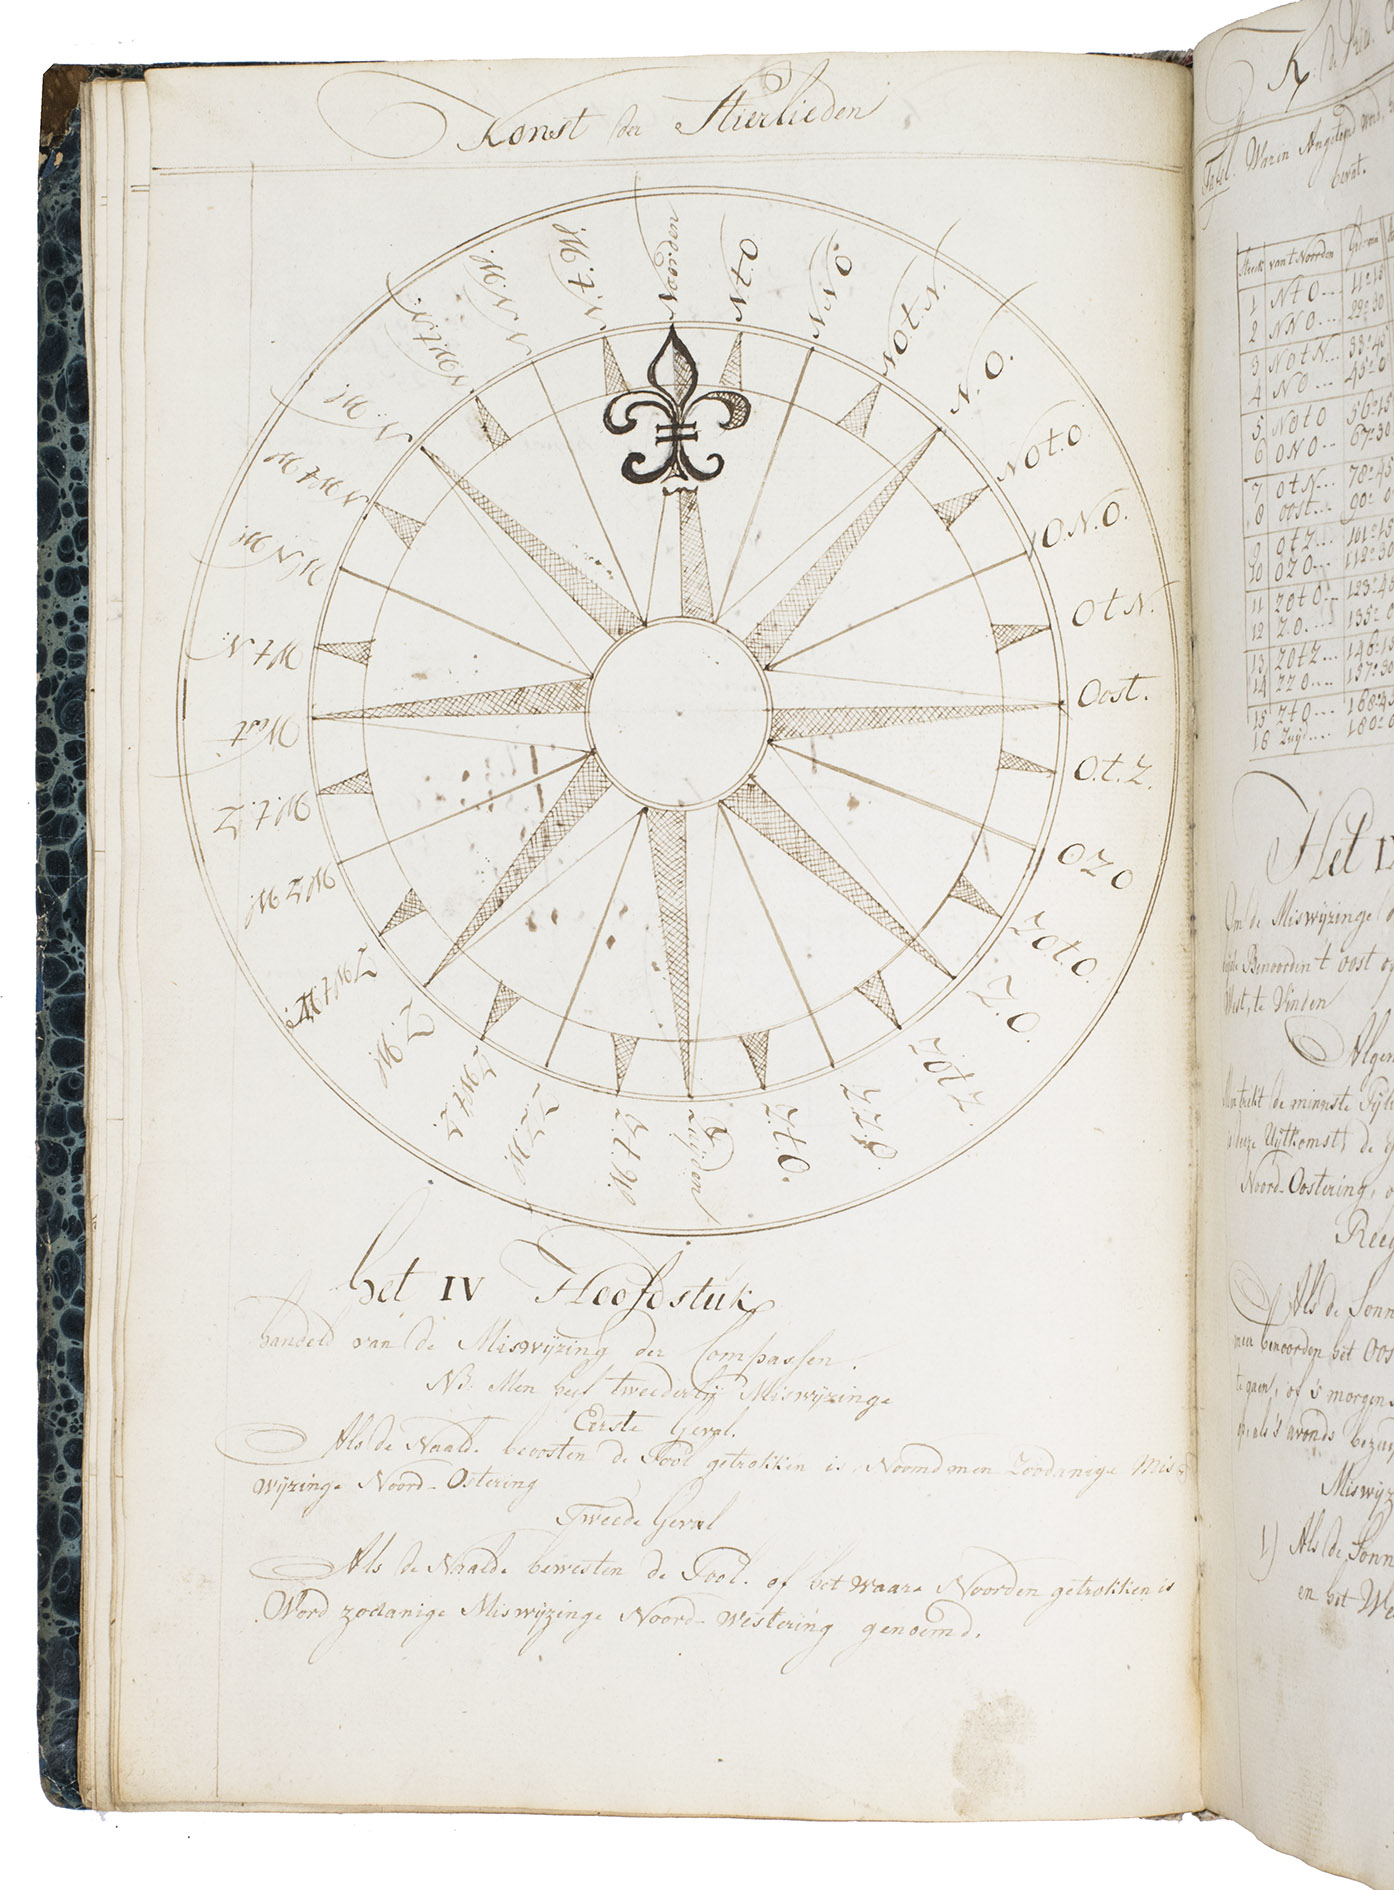 Konst der Stierlieden
Noorden
N.t.O
N.N.O.
N.O.t.N.
N.O.
N.O.t.O.
O.N.O.
O.t.N.
Oost.
O.t.Z.
O Z O
ZOt.O.
Z.O.
ZOtZ.
Z.Z.O.
Z.t.O.
Zuijden
Z.t.W.
Z.Z.W.
Z.W.t.Z.
Z.W.
ZWtW.
WZW.
W.t.Z
West
W.t.N.
W.N.W.
NWtW
N.W.
NW.t.N.
N.N.W.
N.t.W.
het IV Hoofdstuk
handeld van de Miswijzing der Compassen.
NB. Men heeft tweederlij Miswijzinge
Eerste Geval.
Als de Naald. beoosten de Pool getrokken is Noemd men Zoodanige Mis=
wijzinge Noord-Ostering
Tweede Geval
Als de Naalde bewesten de Pool. of het waare Noorden getrokken is
Word zodanige Miswijzinge Noord-Westering genoemd.
K. de
Tafel. Waarin Angetoond word,
bevat.
Streek van t Noorden
1 N t O 11°-15
2 NNO 22°-30
3 NOtN 33°-45
4 NO 45°-0
5 NOtO 56°-15
6 ONO 67°-30
7 OtN 78°-45
8 oost 90°-0
9 OtZ 101°-15
10 OZO 112°-30
11 ZOtO 123°-45
12 Z.O. 135°-0
13 ZOtZ 146°-15
14 ZZO 157°-30
15 ZtO 168°-45
16 Zuijd 180°-0
Het
Om de Miswijzinge
Benoorden t oost
West, te Vinden
Algem
de minste
deze Uijtkomst de
Noord-Oostering,
Als de Sonn
meer benoorden het Oos
te gaen, of 's morgens
als 's avonds
Miswijz
1) Als de Sonn
en het We